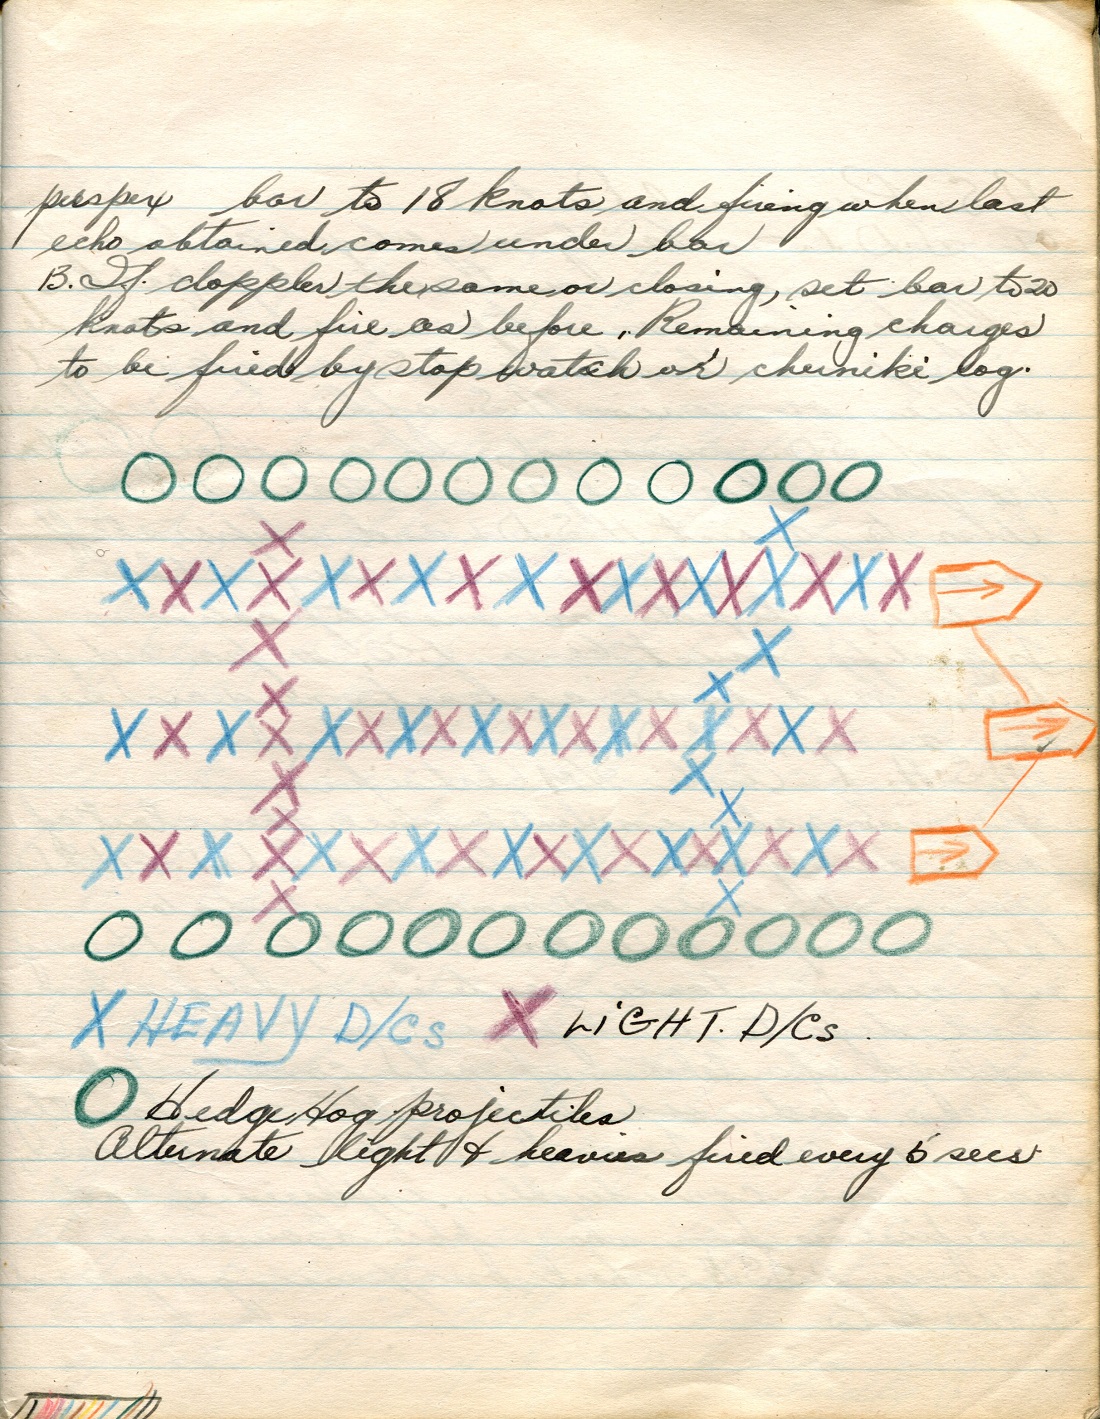 perspex bar to 18 knots and firing when last
echo obtained comes under bar
B. If doppler the same or closing, set bar to 20
knots and fire as before. Remaining charges
to be fired by stop watch or cherniki log.
X HEAVY D/Cs X LiGHT. D/Cs.
O Hedge Hog projectiles
Alternate light & heavies fired every 5 secs